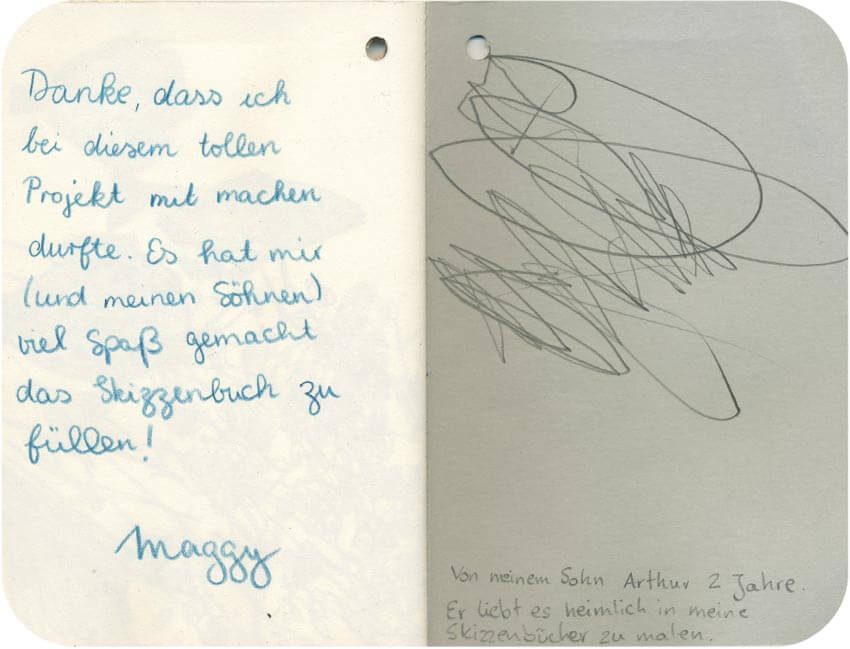 Danke, dass ich
bei diesem tollen
Projekt mit machen
durfte. Es hat mir
(und meinen Söhnen)
viel Spaß gemacht
das Skizzenbuch zu
füllen!
Maggy
Von meinem Sohn Arthur 2 Jahre.
Er liebt es heimlich in meine
Skizzenbücher zu malen.